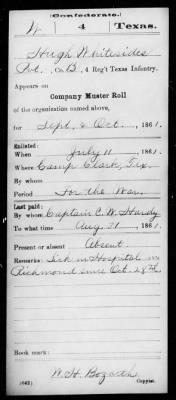 (Confederate.)
W 4 Texas.
Hugh Whitesides
Pvt., Co. B, 4 Reg't Texas Infantry.
Appears on
Company Muster Roll
of the organization named above,
for Sept. & Oct., 1861.
Enlisted:
When July 11, 1861.
Where Camp Clark, Tex.
By whom
Period For the War.
Last paid:
By whom Captain C. W. Hardy
To what time Aug. 31, 1861.
Present or absent Absent.
Remarks: Sick in Hospital in
Richmond since Oct. 28th.
Book mark:
W. H. Bozarth
(642) Copyist.